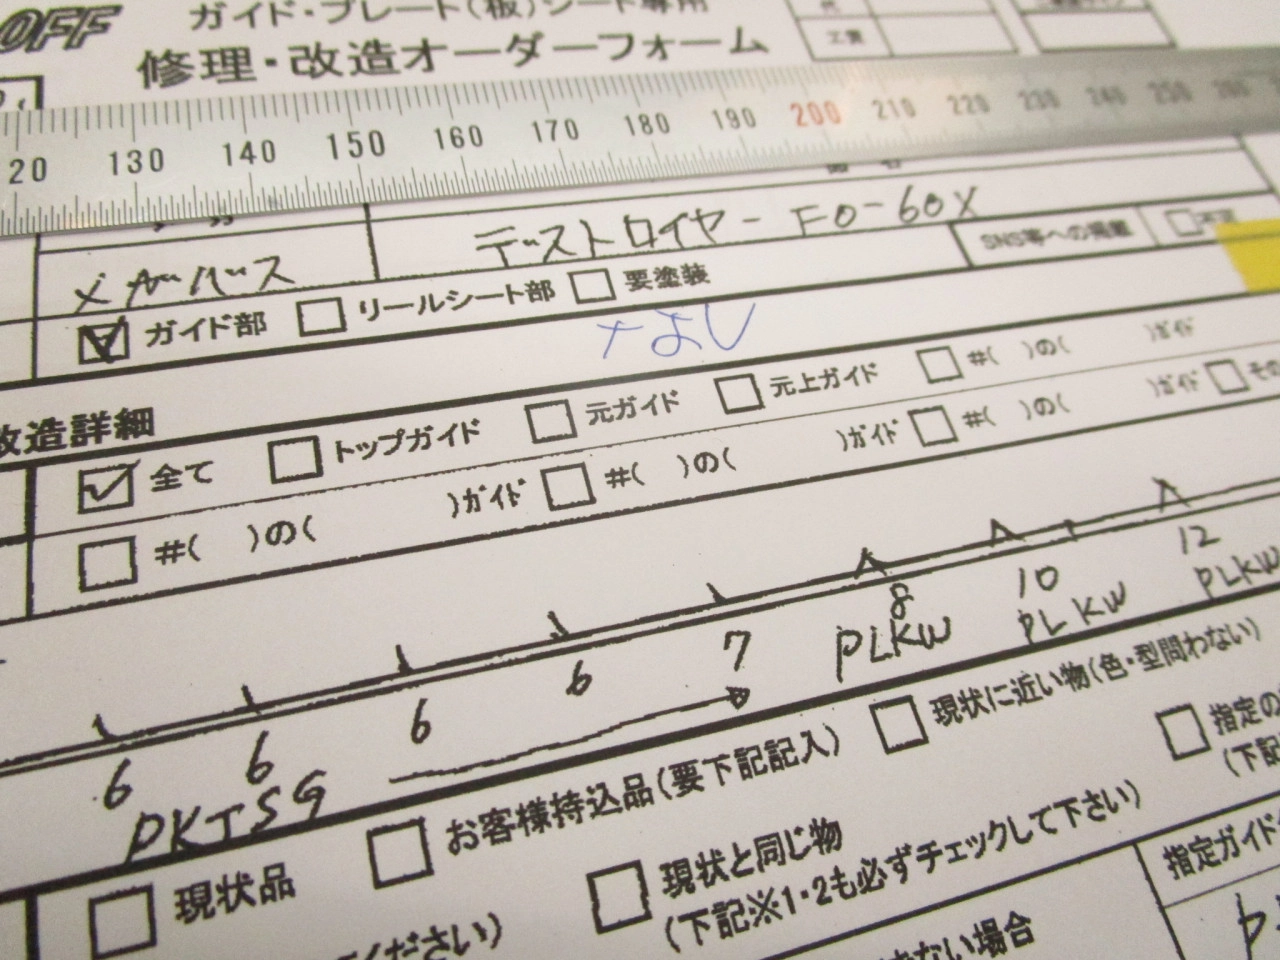 OFF
ガイド・プレート(板)シート専用
修理・改造オーダーフォーム
工賃
20 130 140 150 160 170 180 190 200 210 220 230 240 250 260
メガバス デストロイヤー FO-60X
ガイド部 リールシート部 要塗装 SNS等への掲載
なし
改造詳細
全て トップガイド 元ガイド 元上ガイド #( )の( )ガイド
#( )の( )ガイド #( )の( )ガイド #( )の( )ガイド その
6 6 6 6 7 8 10 12
PKTSG PLKW PLKW PLKW
現状品 お客様持込品(要下記記入) 現状に近い物(色・型問わない) 指定の
現状と同じ物 (下記
(下記※1・2も必ずチェックして下さい) 指定ガイド
ください)
ない場合